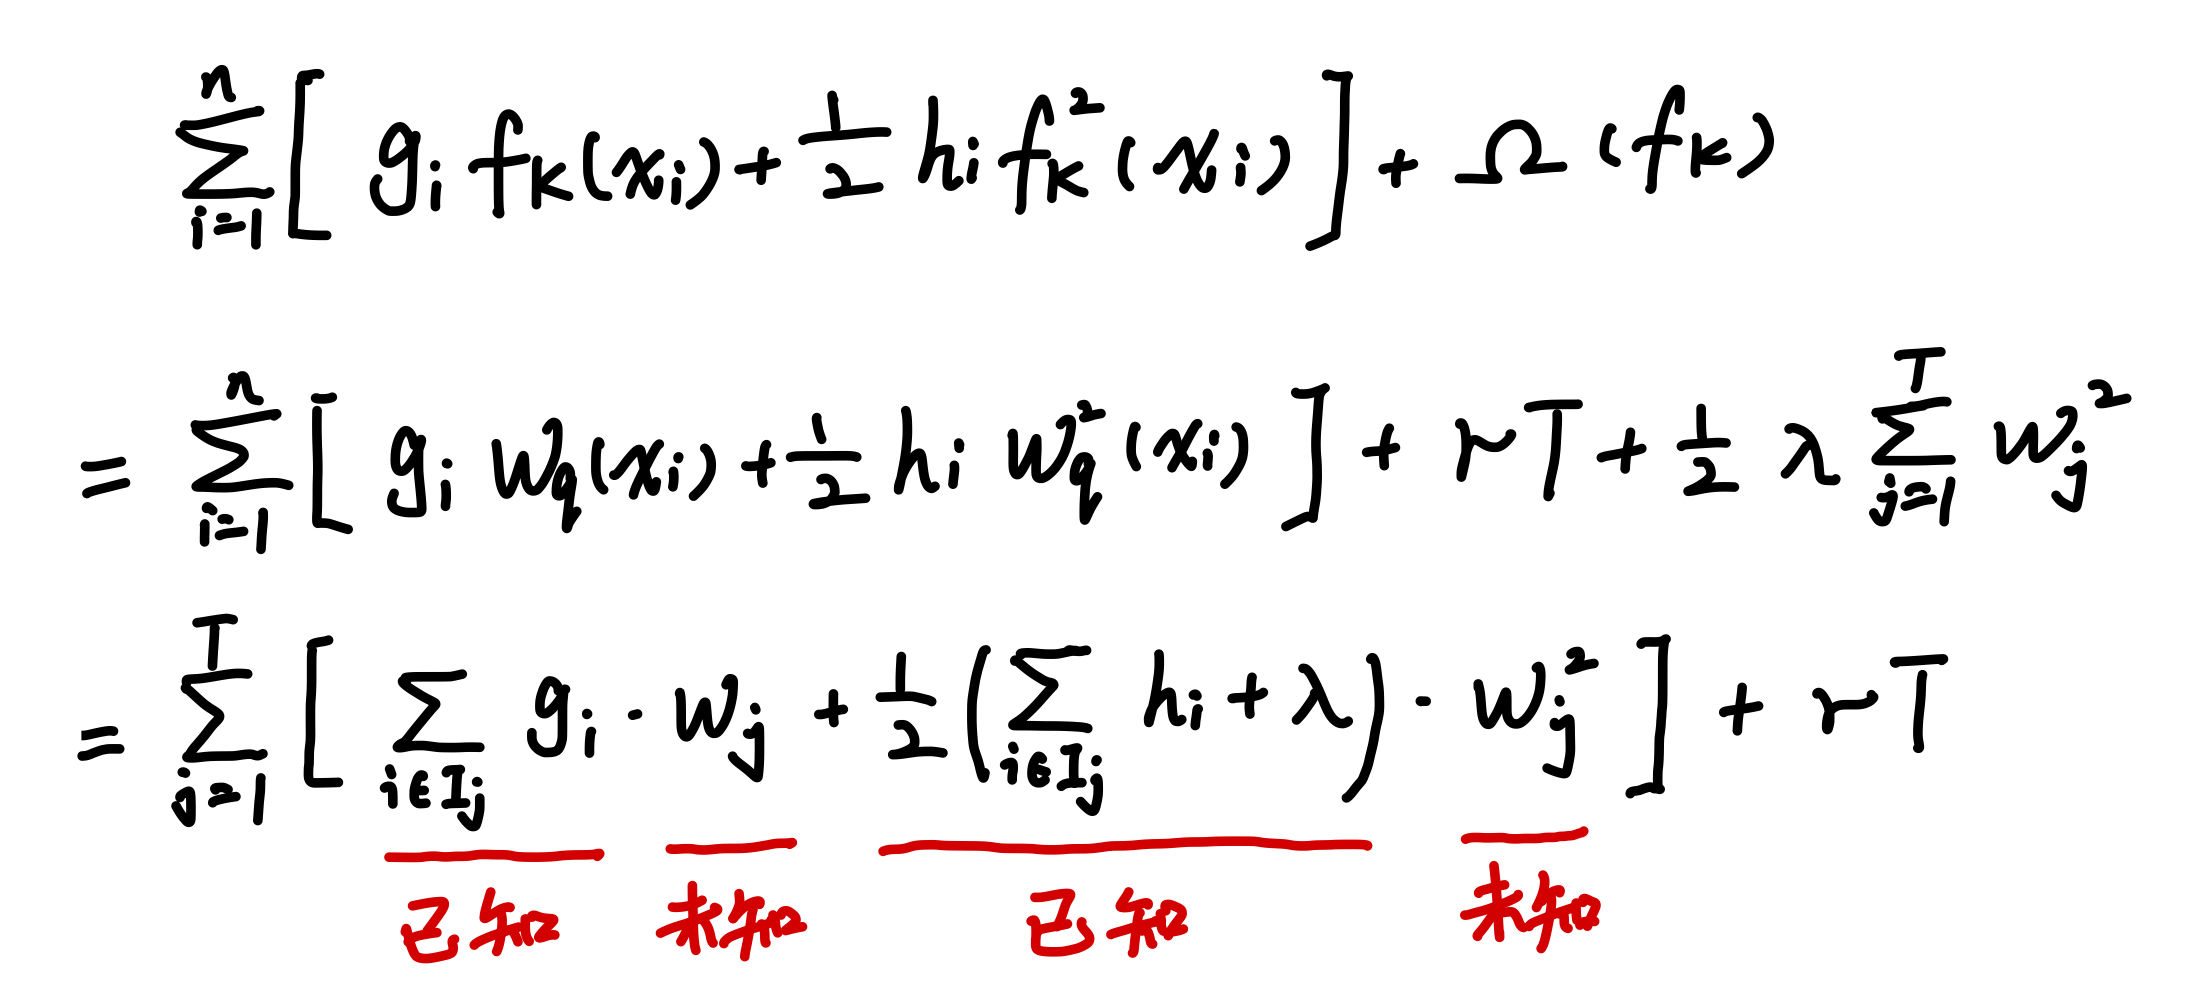 $\sum_{i=1}^{n}\left[ g_i f_K(x_i) + \frac{1}{2} h_i f_K^2(x_i) \right] + \Omega(f_K)$
$= \sum_{i=1}^{n}\left[ g_i w_q(x_i) + \frac{1}{2} h_i w_q^2(x_i) \right] + rT + \frac{1}{2}\lambda \sum_{j=1}^{T} w_j^2$
$= \sum_{j=1}^{T}\left[ \sum_{i \in I_j} g_i \cdot w_j + \frac{1}{2}\left(\sum_{i \in I_j} h_i + \lambda\right) \cdot w_j^2 \right] + rT$
已知 未知 已知 未知